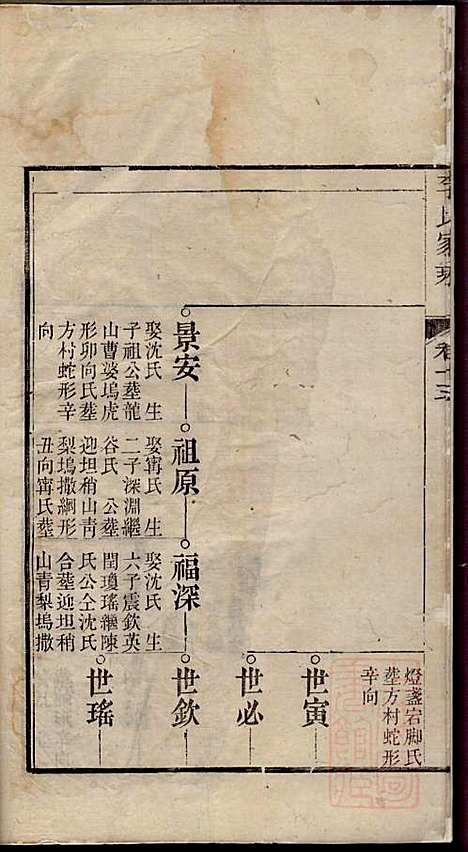 李氏家乘
卷十三
燈盞宕脚氏
塟方村蛇形
辛向
景安
娶沈氏 生
子祖公塟龍
山曹婆塢虎
形卯向氏塟
方村蛇形辛
向
祖原
娶甯氏 生
二子深淵繼
谷氏 公塟
迎坦稍山靑
梨塢撒網形
丑向甯氏塟
福深
娶沈氏 生
六子震欽英
閏瓊瑤繼陳
氏公仝沈氏
合塟迎坦稍
山靑梨塢撒
世寅
世必
世欽
世瑤